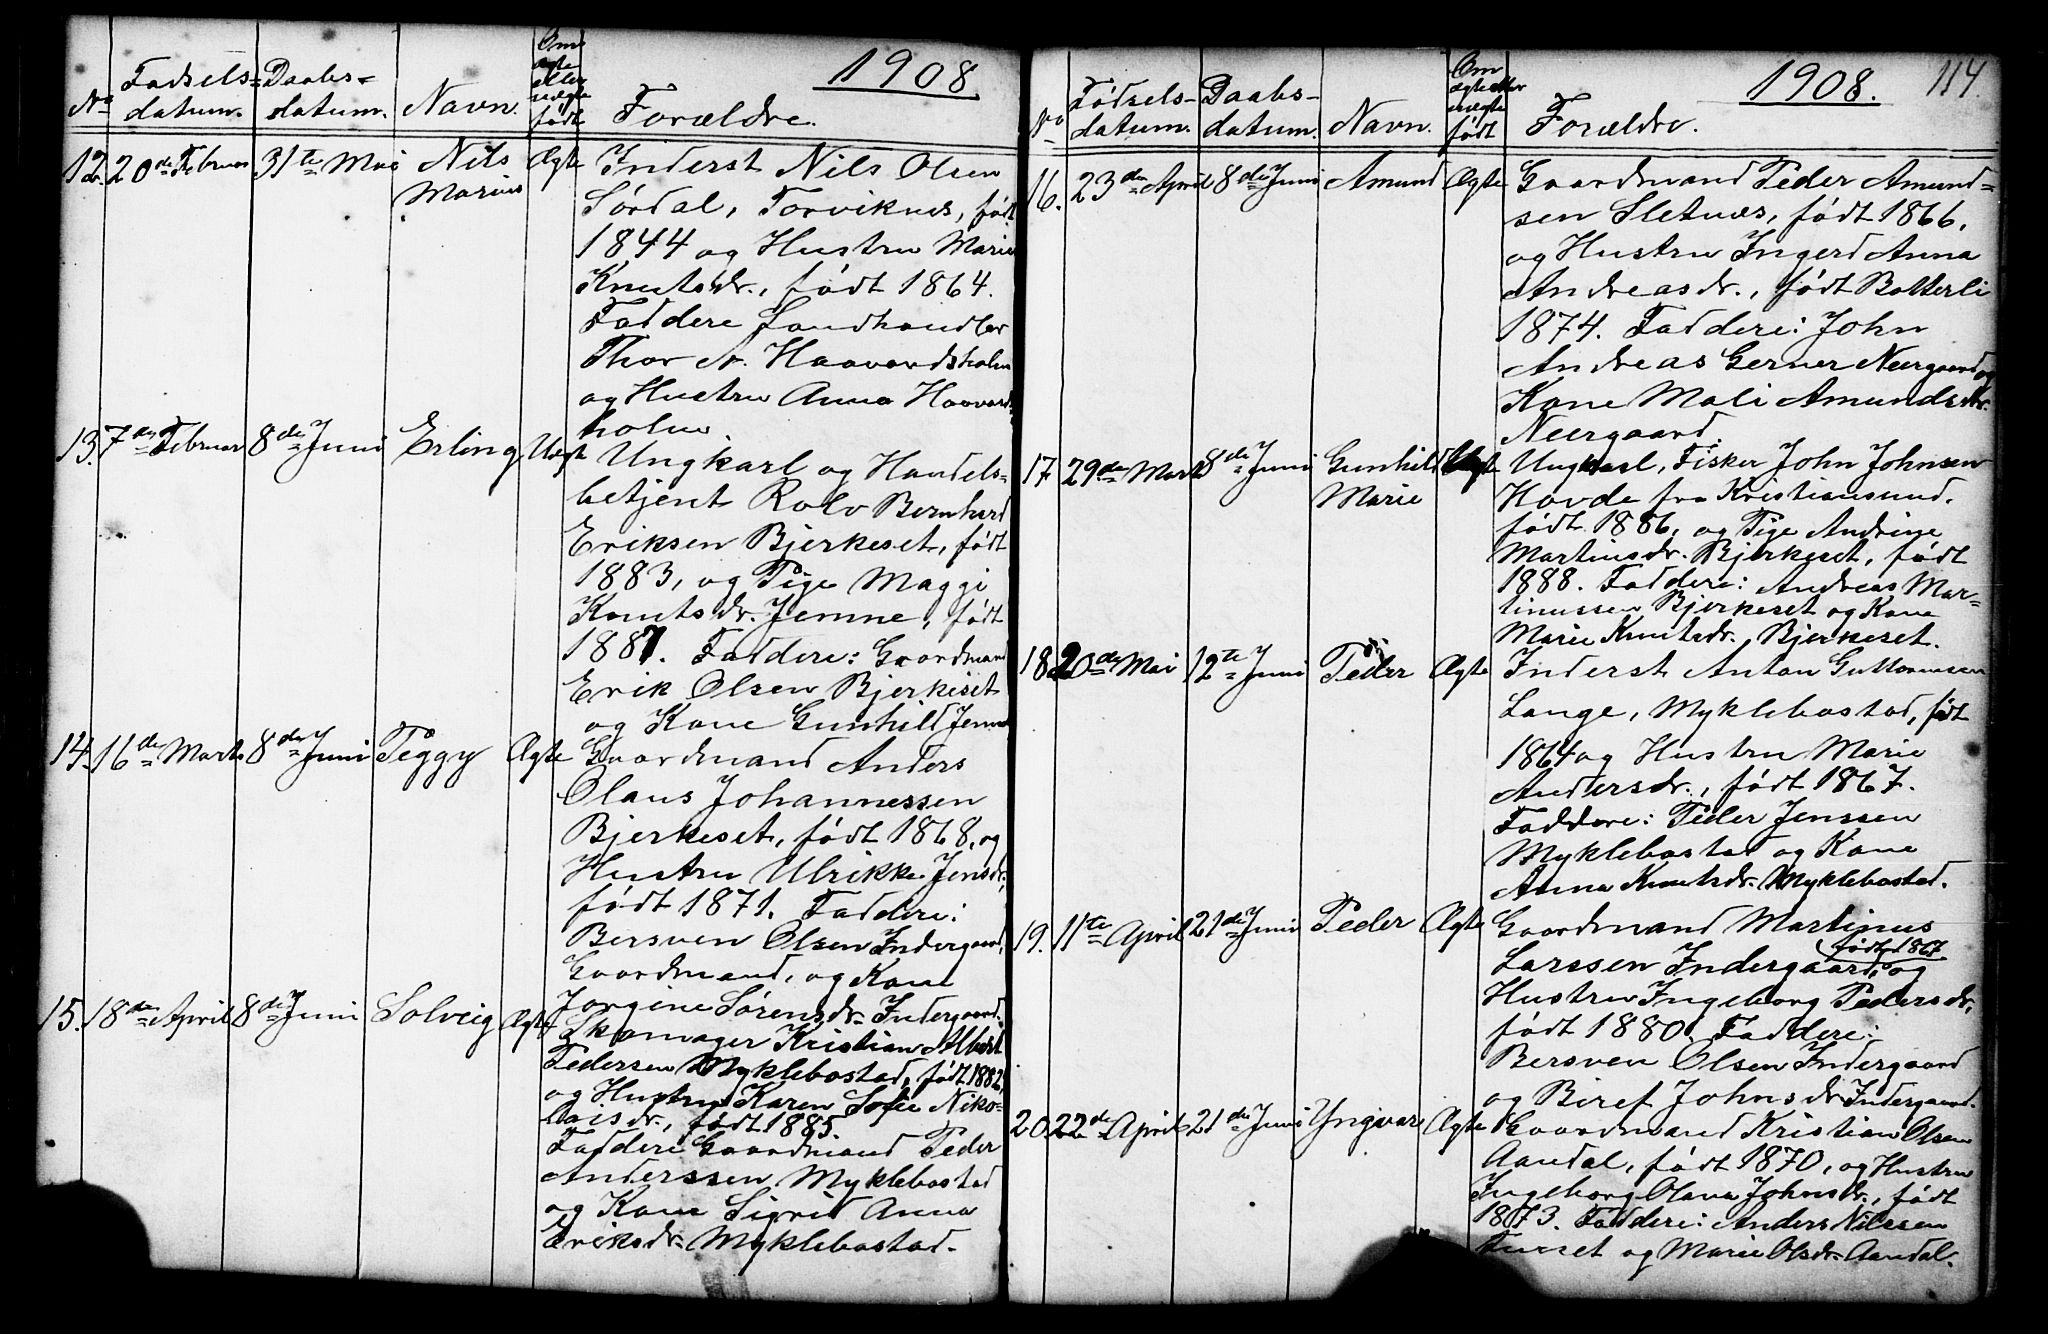 1908
No Fødsels=datum. Daabs=datum. Navn. Om ægte eller uægte født Forældre.
12. 20de Februar 31te Mai Nils Marius Ægte Inderst Nils Olsen
Sørdal, Torviknes, født
1844 og Hustru Marie
Knutsdr., født 1864.
Faddere Landhandler
Thor N. Haavardsholm
og Hustru Anna Haavards
holm
13. 7de Februar 8de Juni Erling Uægt Ungkarl og Handels=
betjent Rolv Bernhard
Eriksen Bjerkeset, født
1883, og Pige Maggi
Knutsdr. Jemne, født
1887. Faddere: Gaardmand
Erik Olsen Bjerkeset
og Kone Gunhild Jemne
14. 16de Marts 8de Juni Peggy Ægte Gaardmand Anders
Olaus Johannessen
Bjerkeset, født 1868, og
Hustru Ulrikke Jensdr.,
født 1871. Faddere:
Bersven Olsen Indergaard,
Gaardmand, og Kone
Jørgine Sørensdr. Indergaard.
15. 18de April 8de Juni Solveig Ægte Skomager Kristian Albert
Pedersen Myklebostad, født 1882,
og Hustru Karen Sofie Niko=
laisdr., født 1885.
Faddere Gaardmand Peder
Anderssen Myklebostad
og Kone Sigrid Anna
Eriksdr. Myklebostad.
1908. 114.
No Fødsels-datum. Daabs-datum. Navn. Om ægte eller uægte født Forældre.
16. 23de April 8de Juni Amund Ægte Gaardmand Peder Amund=
sen Sletnes, født 1866,
og Hustru Ingerd Anna
Andreasdr., født Botterli
1874. Faddere: John
Andreas Gerner Neergaard og
Kone Mali Amundsdr.
Neergaard.
17 29de Marts 8de Juni Gunhild Marie Uægte Ungkarl, Fisker John Johnsen
Hovde fra Kristiansund.
født 1886, og Pige Andrine
Martinsdr. Bjerkeset, født
1888. Faddere: Andreas Mar=
tinussen Bjerkeset og Kone
Marie Knutsdr. Bjerkeset.
18. 20de Mai 12te Juni Peder Ægte Inderst Anton Guttormsen
Lange, Myklebostad, født
1864 og Hustru Marie
Andersdr., født 1867.
Faddere: Peder Jenssen
Myklebostad og Kone
Anna Knutsdr. Myklebostad.
19. 11te April 21de Juni Peder Ægte Gaardmand Martinus
Larssen Indergaard, født 1867 og
Hustru Ingeborg Pedersdr.,
født 1880. Faddere:
Bersven Olsen Indergaard
og Biret Johnsdr. Indergaard.
20. 22de April 21de Juni Yngvar Ægte Gaardmand Kristian Olsen
Aandal, født 1870, og Hustru
Ingeborg Olava Johnsdr., født
1873. Faddere: Anders Nilssen
Furset og Marie Olsdr. Aandal.